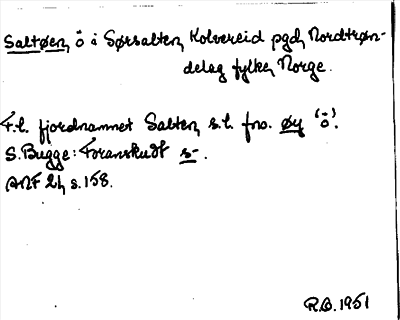 Saltøen, ö i Sørsalten, Kolvereid pgd, Nordtrøn-
delag fylke, Norge.
F.l. fjordnamnet Salten, s.l. fno. øy 'ö'.
S. Bugge: Framskudt s-.
ANF 21, s. 158.
R.O. 1951